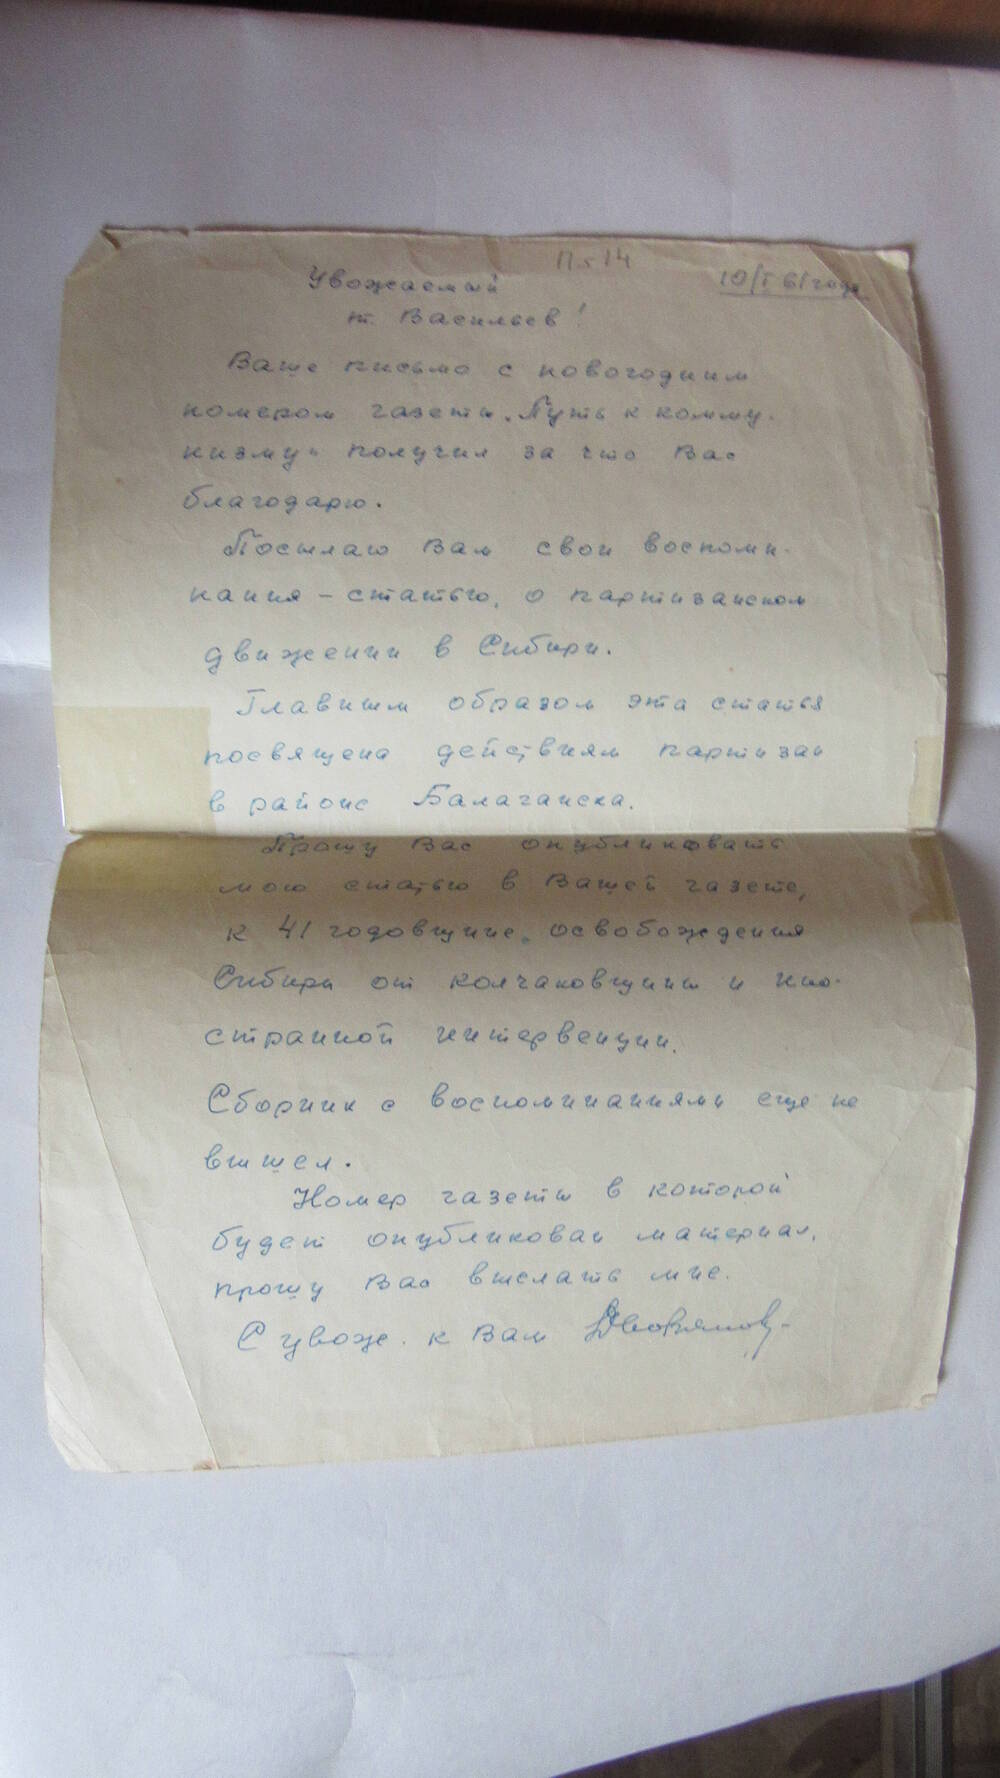 П. 14
10/I 61 года
Уважаемый
т. Васильев!
Ваше письмо с новогодним
номером газеты „Путь к комму-
низму“ получил за что Вас
благодарю.
Посылаю Вам свои воспоми-
нания – статью, о партизанском
движении в Сибири.
Главным образом эта статья
посвящена действиям партизан
в районе Балаганска.
Прошу Вас опубликовать
мою статью в Вашей газете,
к 41 годовщине, освобождения
Сибири от колчаковщины и ино-
странной интервенции.
Сборник с воспоминаниями еще не
вышел.
Номер газеты в которой
будет опубликован материал,
прошу Вас выслать мне.
С уваж. к Вам